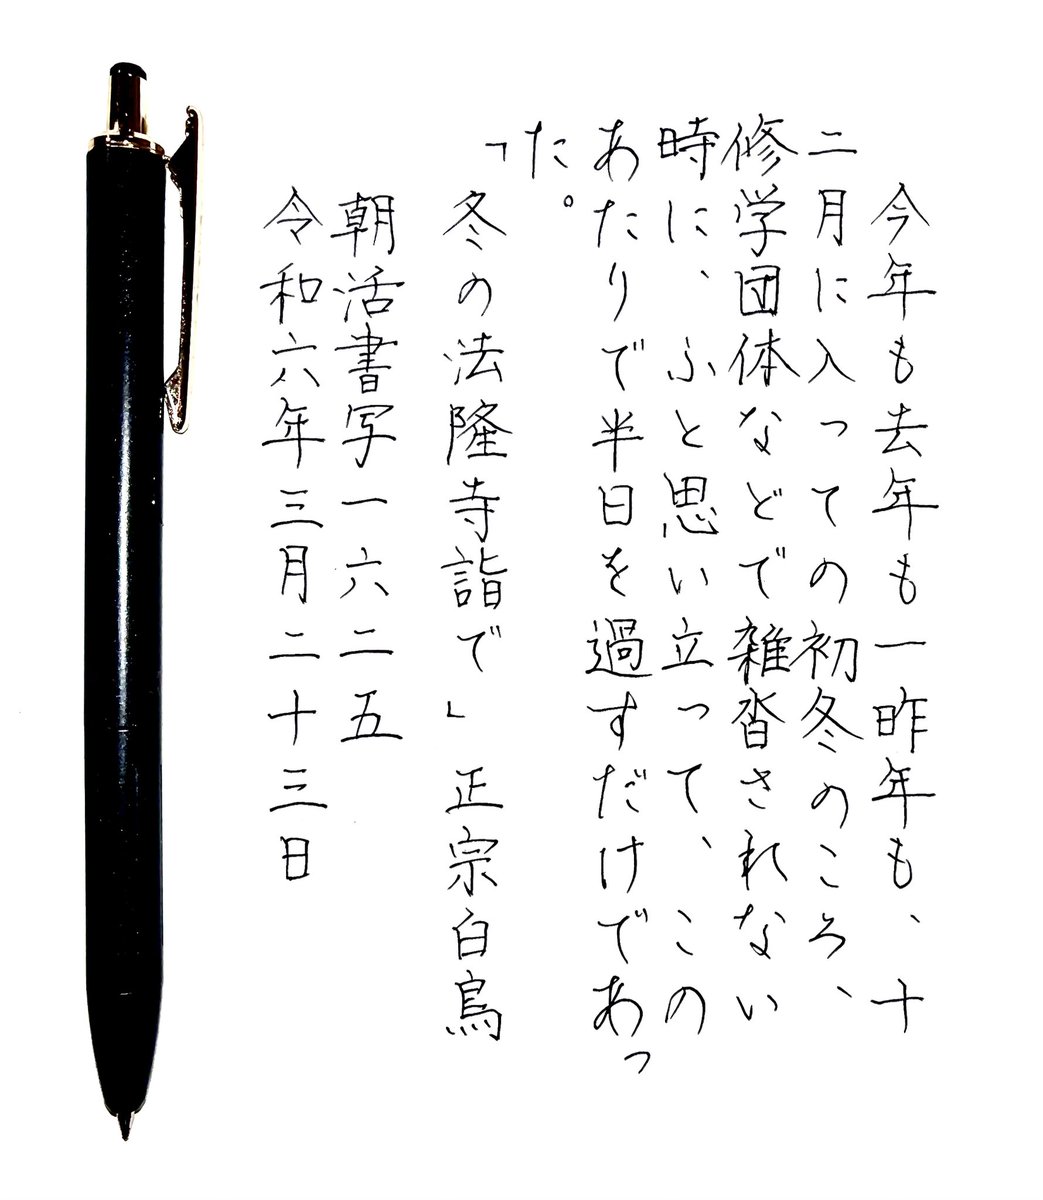 今年も去年も一昨年も、十
二月に入っての初冬のころ、
修学団体などで雑沓されない
時に、ふと思い立って、この
あたりで半日を過すだけであっ
た。
「冬の法隆寺詣で」正宗白鳥
朝活書写一六二五
令和六年三月二十三日